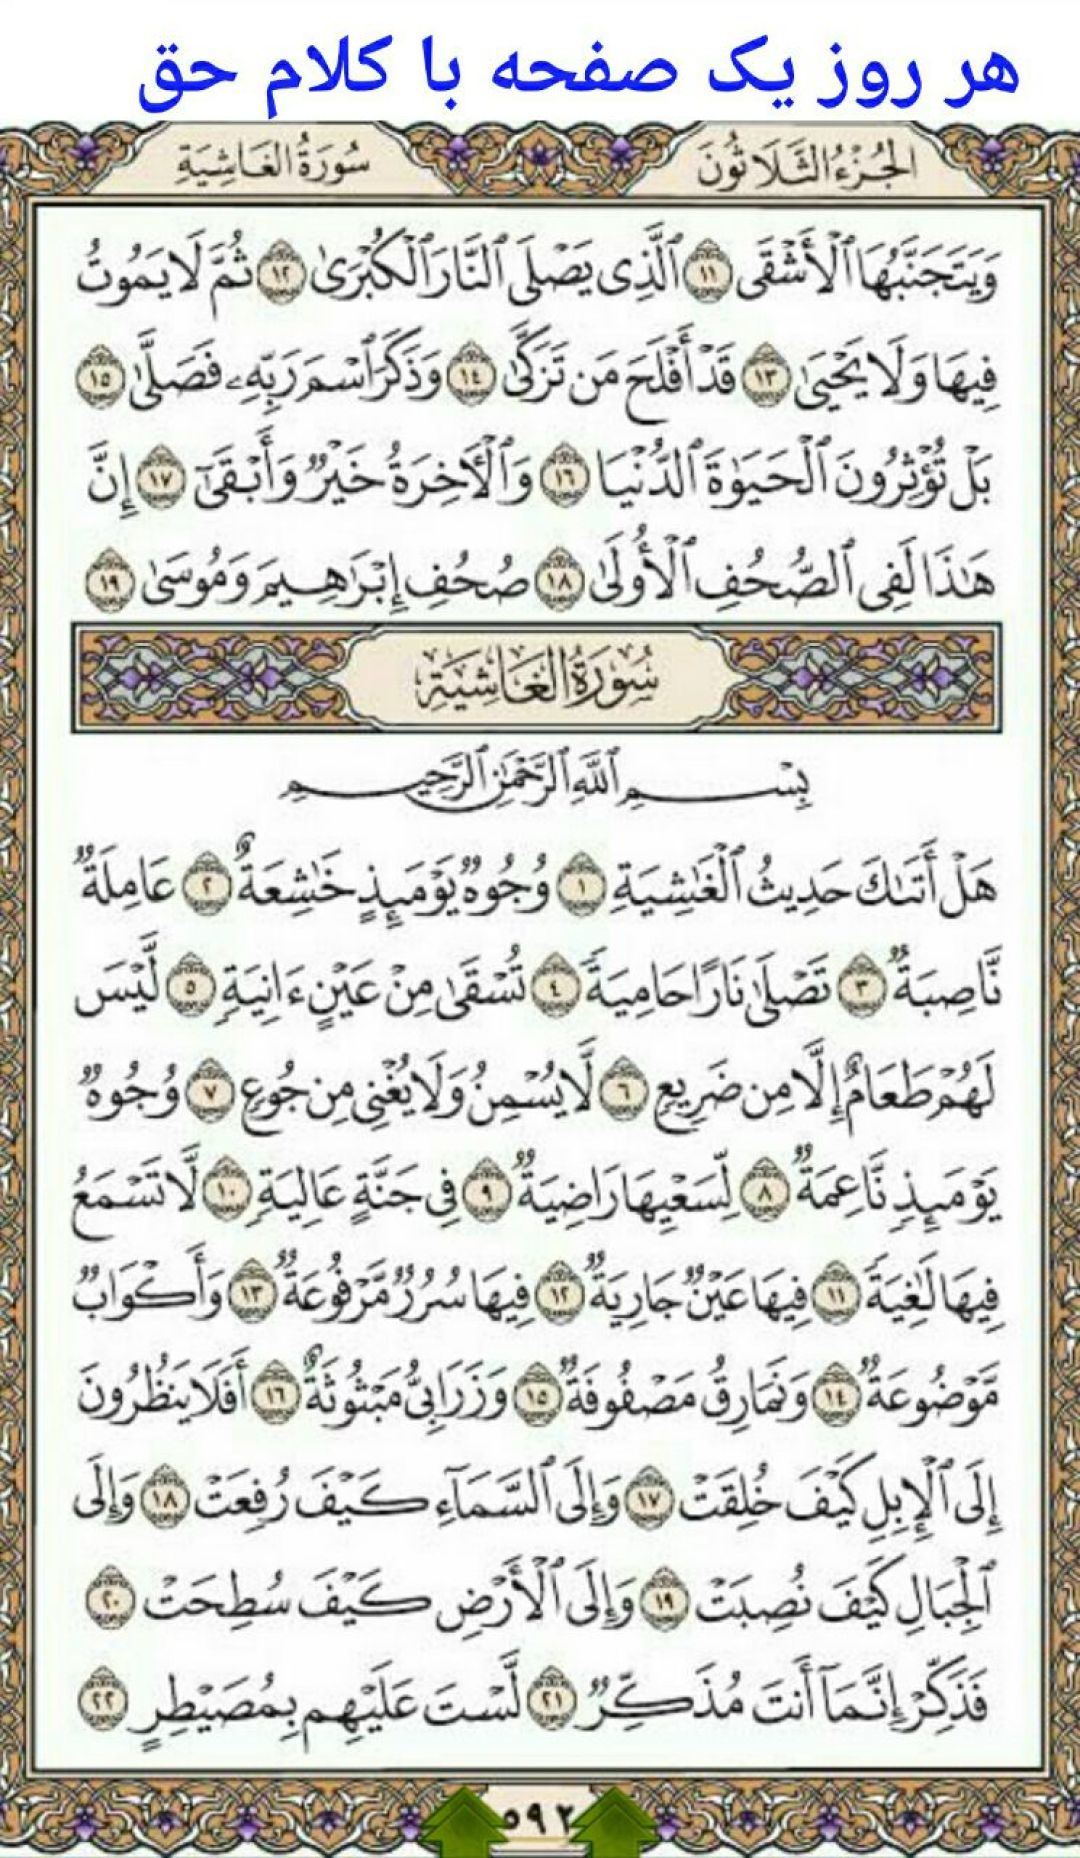 هر روز یک صفحه با کلام حق
الجُزءُ الثَّلَاثُونَ
سُورَةُ الغَاشِيَةِ
وَيَتَجَنَّبُهَا ٱلۡأَشۡقَى ١١ ٱلَّذِي يَصۡلَى ٱلنَّارَ ٱلۡكُبۡرَىٰ ١٢ ثُمَّ لَا يَمُوتُ
فِيهَا وَلَا يَحۡيَىٰ ١٣ قَدۡ أَفۡلَحَ مَن تَزَكَّىٰ ١٤ وَذَكَرَ ٱسۡمَ رَبِّهِۦ فَصَلَّىٰ ١٥
بَلۡ تُؤۡثِرُونَ ٱلۡحَيَوٰةَ ٱلدُّنۡيَا ١٦ وَٱلۡأٓخِرَةُ خَيۡرٞ وَأَبۡقَىٰٓ ١٧ إِنَّ
هَٰذَا لَفِي ٱلصُّحُفِ ٱلۡأُولَىٰ ١٨ صُحُفِ إِبۡرَٰهِيمَ وَمُوسَىٰ ١٩
سُورَةُ الغَاشِيَةِ
بِسۡمِ ٱللَّهِ ٱلرَّحۡمَٰنِ ٱلرَّحِيمِ
هَلۡ أَتَىٰكَ حَدِيثُ ٱلۡغَٰشِيَةِ ١ وُجُوهٞ يَوۡمَئِذٍ خَٰشِعَةٌ ٢ عَامِلَةٞ
نَّاصِبَةٞ ٣ تَصۡلَىٰ نَارًا حَامِيَةٗ ٤ تُسۡقَىٰ مِنۡ عَيۡنٍ ءَانِيَةٖ ٥ لَّيۡسَ
لَهُمۡ طَعَامٌ إِلَّا مِن ضَرِيعٖ ٦ لَّا يُسۡمِنُ وَلَا يُغۡنِي مِن جُوعٖ ٧ وُجُوهٞ
يَوۡمَئِذٖ نَّاعِمَةٞ ٨ لِّسَعۡيِهَا رَاضِيَةٞ ٩ فِي جَنَّةٍ عَالِيَةٖ ١٠ لَّا تَسۡمَعُ
فِيهَا لَٰغِيَةٗ ١١ فِيهَا عَيۡنٞ جَارِيَةٞ ١٢ فِيهَا سُرُرٞ مَّرۡفُوعَةٞ ١٣ وَأَكۡوَابٞ
مَّوۡضُوعَةٞ ١٤ وَنَمَارِقُ مَصۡفُوفَةٞ ١٥ وَزَرَابِيُّ مَبۡثُوثَةٌ ١٦ أَفَلَا يَنظُرُونَ
إِلَى ٱلۡإِبِلِ كَيۡفَ خُلِقَتۡ ١٧ وَإِلَى ٱلسَّمَآءِ كَيۡفَ رُفِعَتۡ ١٨ وَإِلَى
ٱلۡجِبَالِ كَيۡفَ نُصِبَتۡ ١٩ وَإِلَى ٱلۡأَرۡضِ كَيۡفَ سُطِحَتۡ ٢٠
فَذَكِّرۡ إِنَّمَآ أَنتَ مُذَكِّرٞ ٢١ لَّسۡتَ عَلَيۡهِم بِمُصَيۡطِرٍ ٢٢
٥٩٢